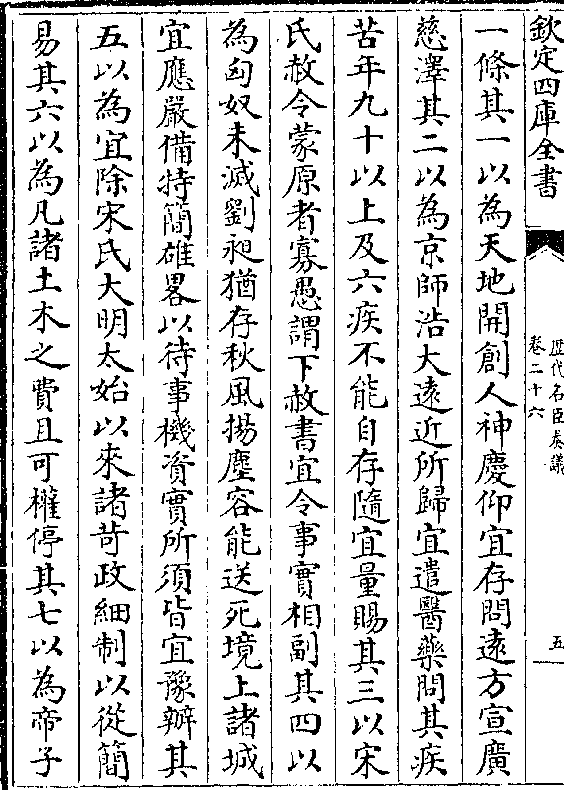 欽定四庫全書
歴代名臣奏議
卷二十六
五
一條其一以為天地開創人神慶仰宜存問逺方宣廣
慈澤其二以為京師浩大逺近所歸宜遣醫藥問其疾
苦年九十以上及六疾不能自存隨宜量賜其三以宋
氏赦令蒙原者寡愚謂下赦書宜令事實相副其四以
為匈奴未滅劉昶猶存秋風揚塵容能送死境上諸城
宜應嚴備特簡雄畧以待事機資實所須皆宜豫辦其
五以為宜除宋氏大明太始以來諸苛政細制以從簡
易其六以為凡諸土木之費且可權停其七以為帝子